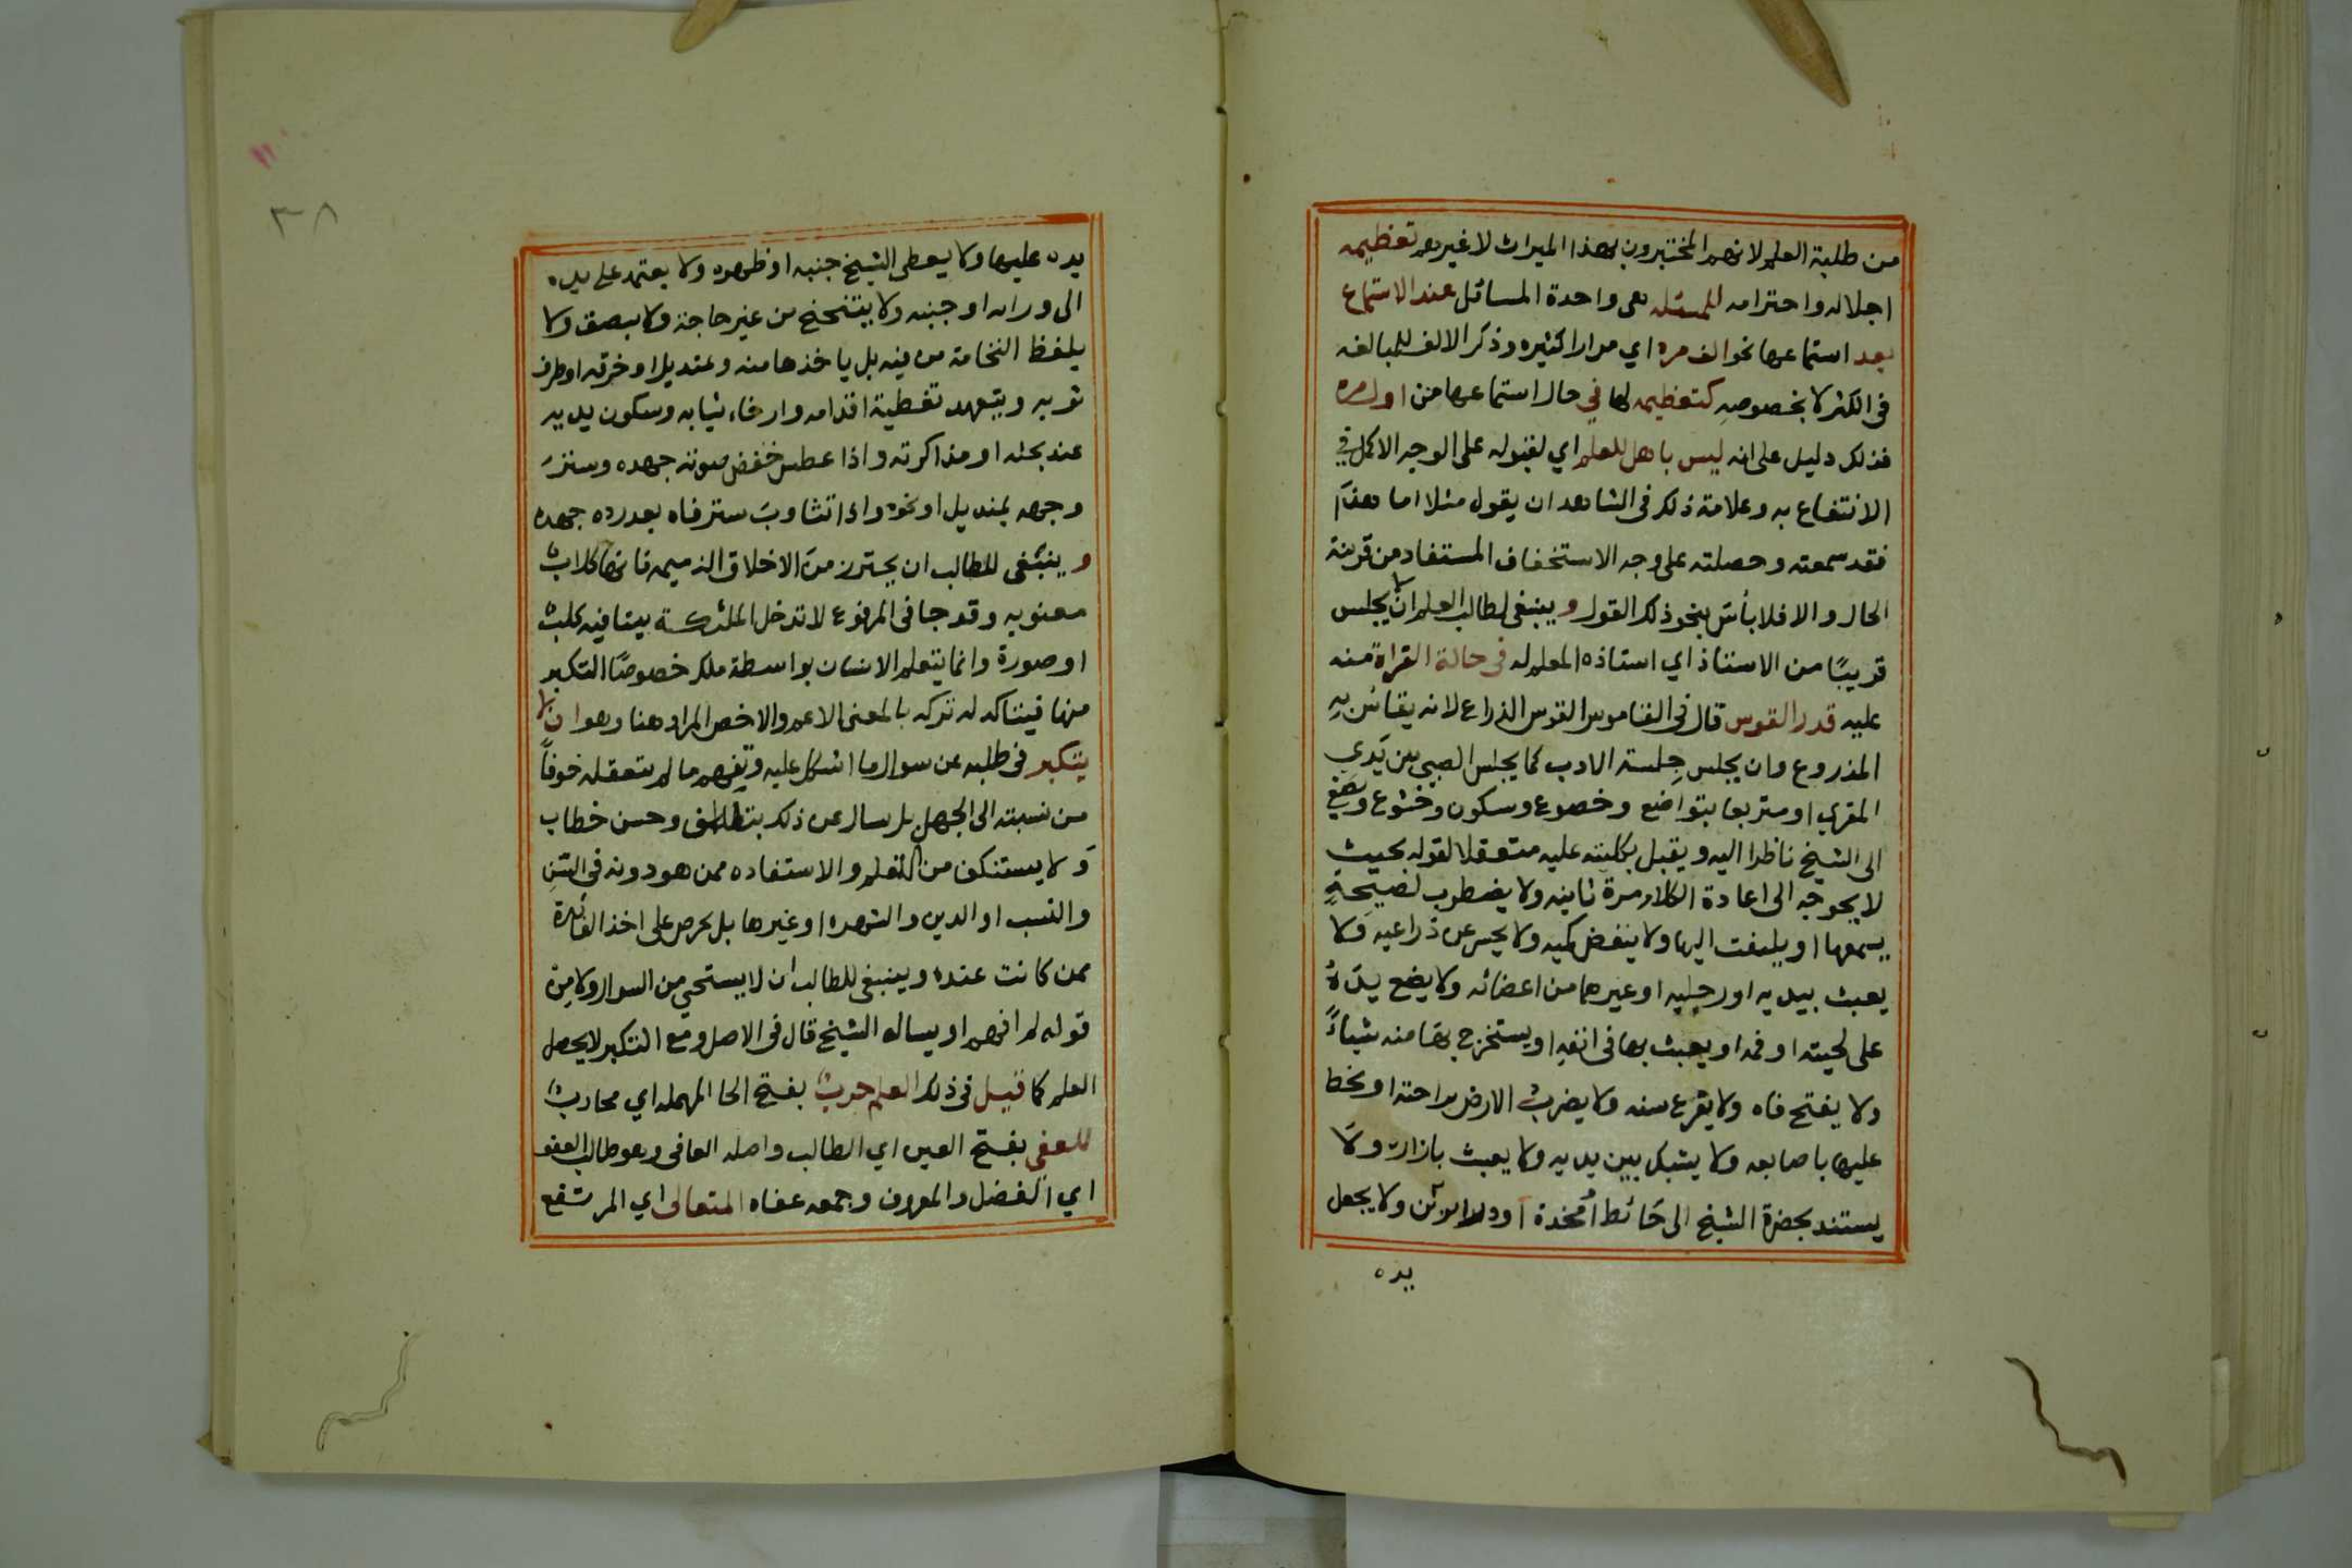 من طلبة العلم لانهم المختبرون بهذا الميراث لا غيرهم تعظيمه
اجلاله واحترامه للمسئله هى واحدة المسائل عند الاستماع
بعد استماعها نحو الف مره اي مرارا كثيره وذكر الالف للمبالغه
فى الكثر لا بخصوصه كتعظيمه لها في حال استماعها من اول مره
فذلك دليل على انه ليس باهل للعلم اي لقبوله على الوجه الاكمل في
الانتفاع به وعلامة ذلك فى الشاهد ان يقول مثلا اما هذا
فقد سمعته وحصلته على وجه الاستخفاف المستفاد من قرينة
الحال والا فلا بأس بنحو ذلك القول وينبغى لطالب العلم ان لا يجلس
قريبًا من الاستاذ اي استاذه المعلم له في حالة القراة منه
عليه قدر القوس قال فى القاموس القوس الذراع لانه يقاس به
المذروع وان يجلس جلسة الادب كما يجلس الصبي بين يدي
المقري او متربعا بتواضع وخضوع وسكون وخشوع ويصغي
الى الشيخ ناظرا اليه ويقبل بكليته عليه متعقلا لقوله بحيث
لا يحوجه الى اعادة الكلام مرة ثانيه ولا يضطرب لصيحةٍ
يسمعها او يلتفت اليها ولا ينفض كميه ولا يحسر عن ذراعيه ولا
يعبث بيديه او رجليه او غيرهما من اعضائه ولا يضع يدهُ
على لحيته او فمه او يعبث بها فى انفه او يستخرج بها منه شيأً
ولا يفتح فاه ولا يقرع سنه ولا يضرب الارض براحته او يخط
عليها باصابعه ولا يشبك بين يديه ولا يعبث بازاره ولا
يستند بحضرة الشيخ الى حائط او مخدة او ولا يجعل
يده
٣٨
يده عليها ولا يعطى الشيخ جنبه او ظهره ولا يعتمد على يده
الى ورائه او جنبه ولا يتنحنح من غير حاجة ولا يبصق ولا
يلفظ النخامة من فيه بل ياخذها منه بمنديل او خرقه او طرف
ثوبه ويتعهد تغطية اقدامه وارخاء ثيابه وسكون يديه
عند بحثه او مذاكرته واذا عطس خفض صوته جهده وستر
وجهه بمنديل او نحوه واذا تثاوب ستر فاه بعد رده جهده
وينبغى للطالب ان يحترز من الاخلاق الذميمه فانها كلاب
معنويه وقد جا فى المرفوع لا تدخل الملئكة بيتا فيه كلب
او صورة وانما يتعلم الانسان بواسطة ملك خصوصًا التكبر
منها فيتاكد له تركه بالمعنى الاعم والاخص المراد هنا وهو ان لا
يتكبر فى طلبه عن سوال ما اشكل عليه وتفهم ما لم يتعقله خوفاً
من نسبته الى الجهل بل يسال عن ذلك بتلطف وحسن خطاب
ولا يستنكف من التعلم والاستفاده ممن هو دونه فى السن
والنسب او الدين والشهره او غيرها بل يحرص على اخذ الفائدة
ممن كانت عنده وينبغى للطالب ان لا يستحي من السوال ولا من
قوله لم افهم او يساله الشيخ قال فى الاصل ومع التكبر لا يحصل
العلم كما قيل فى ذلك العلم حرب بفتح الحا المهمله اي محارب
للعفى بفتح العين اي الطالب واصله العافى وهو طالب العفو
اي الفضل والمعروف وجمعه عفاه المتعالى اي المرتفع